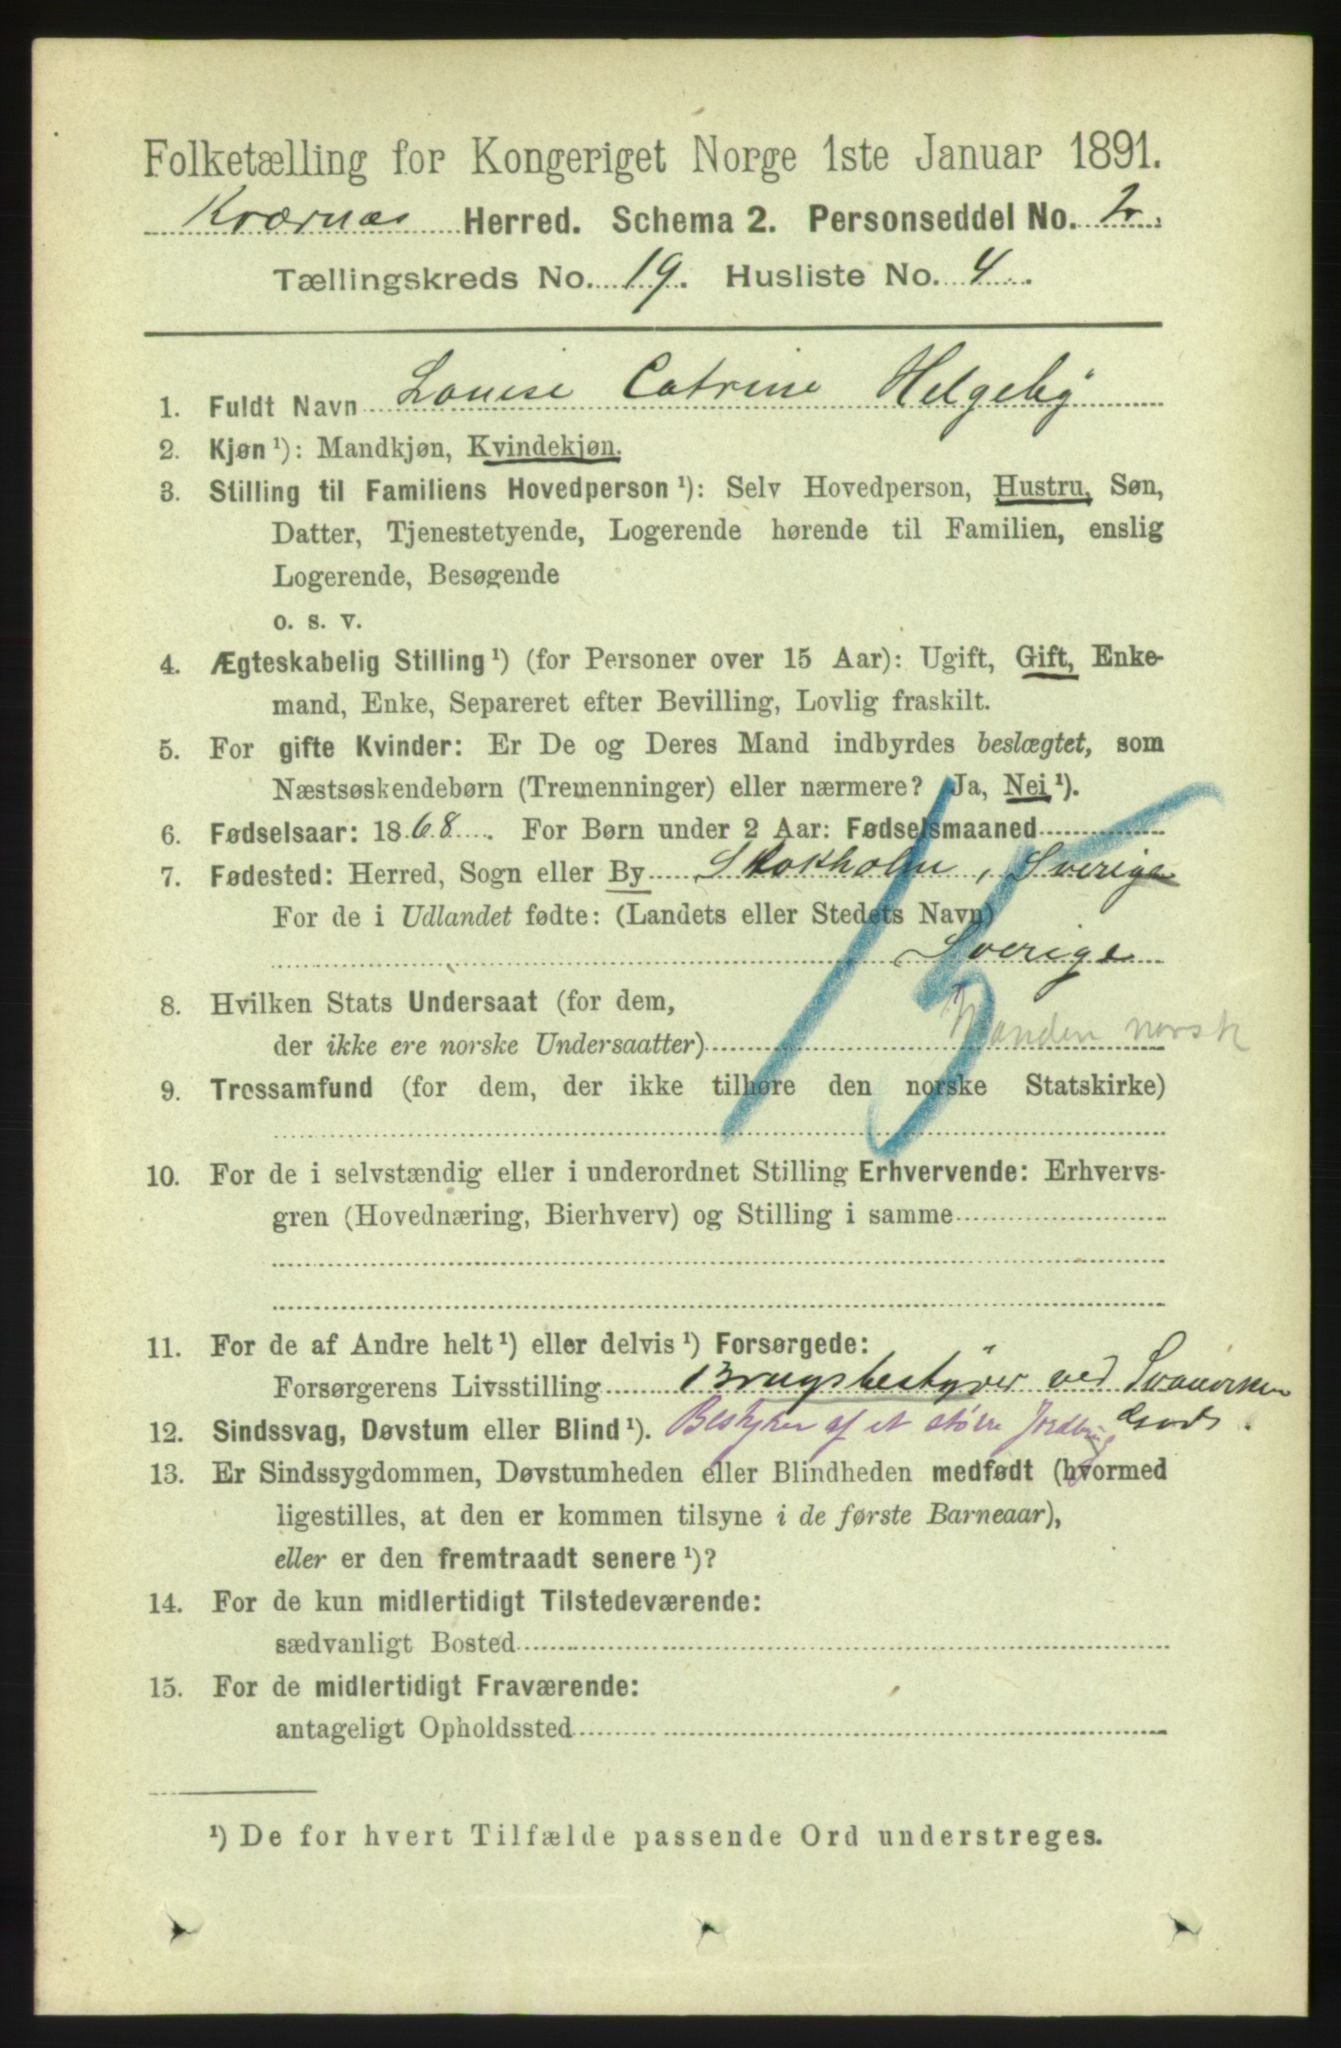 Folketælling for Kongeriget Norge 1ste Januar 1891.
Kværnæs Herred. Schema 2. Personseddel No. 2.
Tællingskreds No. 19. Husliste No. 4.
1. Fuldt Navn Louise Catrine Helgeby
2. Kjøn ¹): Mandkjøn, Kvindekjøn.
3. Stilling til Familiens Hovedperson ¹): Selv Hovedperson, Hustru, Søn,
Datter, Tjenestetyende, Logerende hørende til Familien, enslig
Logerende, Besøgende
o. s. v.
4. Ægteskabelig Stilling ¹) (for Personer over 15 Aar): Ugift, Gift, Enke-
mand, Enke, Separeret efter Bevilling, Lovlig fraskilt.
5. For gifte Kvinder: Er De og Deres Mand indbyrdes beslægtet, som
Næstsøskendebørn (Tremenninger) eller nærmere? Ja, Nei ¹).
6. Fødselsaar: 1868. For Børn under 2 Aar: Fødselsmaaned
7. Fødested: Herred, Sogn eller By Stokholm, Sverige
For de i Udlandet fødte: (Landets eller Stedets Navn)
Sverige
15
8. Hvilken Stats Undersaat (for dem,
der ikke ere norske Undersaatter) Manden norsk
9. Trossamfund (for dem, der ikke tilhøre den norske Statskirke)
10. For de i selvstændig eller i underordnet Stilling Erhvervende: Erhvervs-
gren (Hovednæring, Bierhverv) og Stilling i samme
11. For de af Andre helt ¹) eller delvis ¹) Forsørgede:
Forsørgerens Livsstilling Brugsbestyrer ved Svanviken
12. Sindssvag, Døvstum eller Blind ¹). Bestyrer af et større Jordbrug Gods.
13. Er Sindssygdommen, Døvstumheden eller Blindheden medfødt (hvormed
ligestilles, at den er kommen tilsyne i de første Barneaar),
eller er den fremtraadt senere ¹)?
14. For de kun midlertidigt Tilstedeværende:
sædvanligt Bosted
15. For de midlertidigt Fraværende:
antageligt Opholdssted
¹) De for hvert Tilfælde passende Ord understreges.